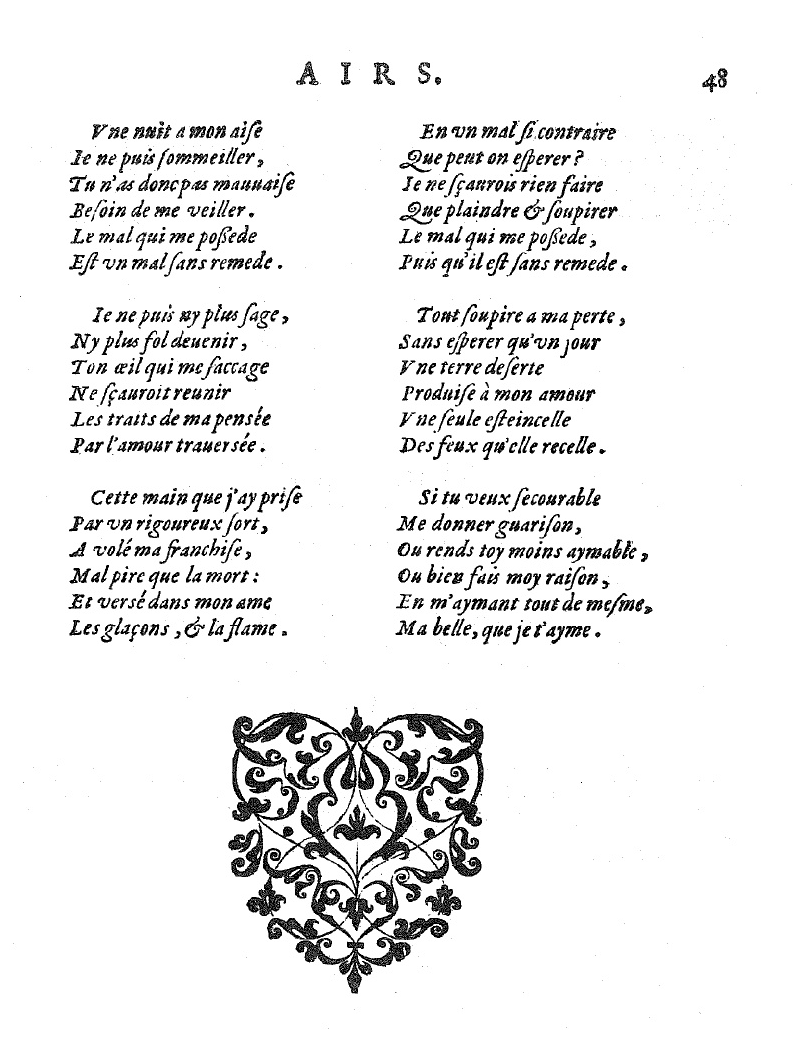 AIRS.
48
Vne nuit a mon aiſe
Ie ne puis ſommeiller,
Tu n'as donc pas mauuaiſe
Beſoin de me veiller.
Le mal qui me poßede
Eſt vn mal ſans remede.
Ie ne puis ny plus ſage,
Ny plus fol deuenir,
Ton œil qui me ſaccage
Ne ſçauroit reunir
Les traits de ma pensée
Par l'amour trauersée.
Cette main que j'ay priſe
Par vn rigoureux ſort,
A volé ma franchiſe,
Mal pire que la mort:
Et versé dans mon ame
Les glaçons, & la flame.
En vn mal ſi contraire
Que peut on eſperer?
Ie ne ſçaurois rien faire
Que plaindre & ſoupirer
Le mal qui me poßede,
Puis qu'il eſt ſans remede.
Tout ſoupire a ma perte,
Sans eſperer qu'vn jour
Vne terre deſerte
Produiſe à mon amour
Vne ſeule eſteincelle
Des feux qu'elle recelle.
Si tu veux ſecourable
Me donner guariſon,
Ou rends toy moins aymable,
Ou bien fais moy raiſon,
En m'aymant tout de meſme,
Ma belle, que je t'ayme.